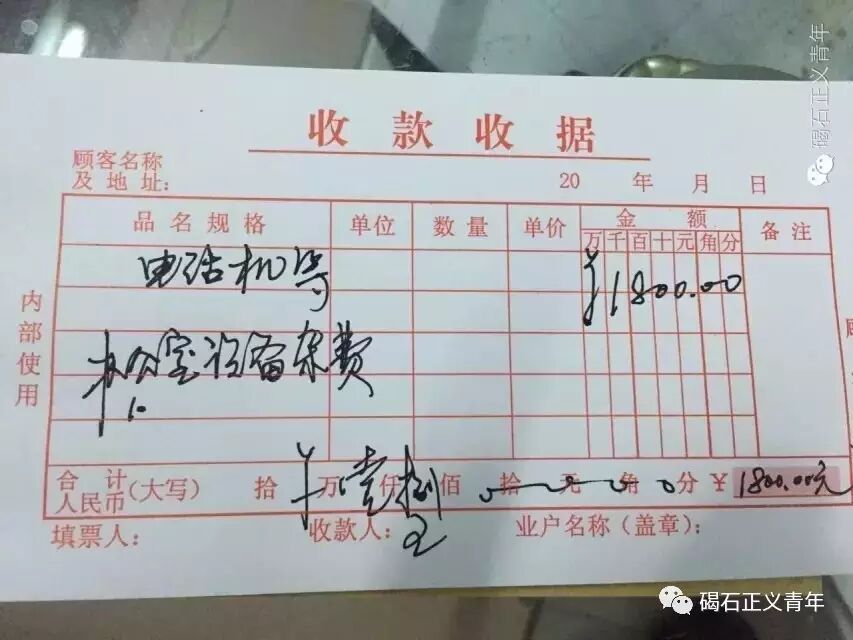 碣石正义青年
收款收据
顾客名称
及地址: 20 年 月 日
品名规格 单位 数量 单价 金额 备注
万千百十元角分
电话机等 ¥1800.00
办公室设备杂费
内部使用
合计
人民币(大写) 拾 ¥万 壹仟 捌佰 拾 元 角 分 ¥ 1800.00元
填票人: 收款人: 业户名称(盖章):
碣石正义青年